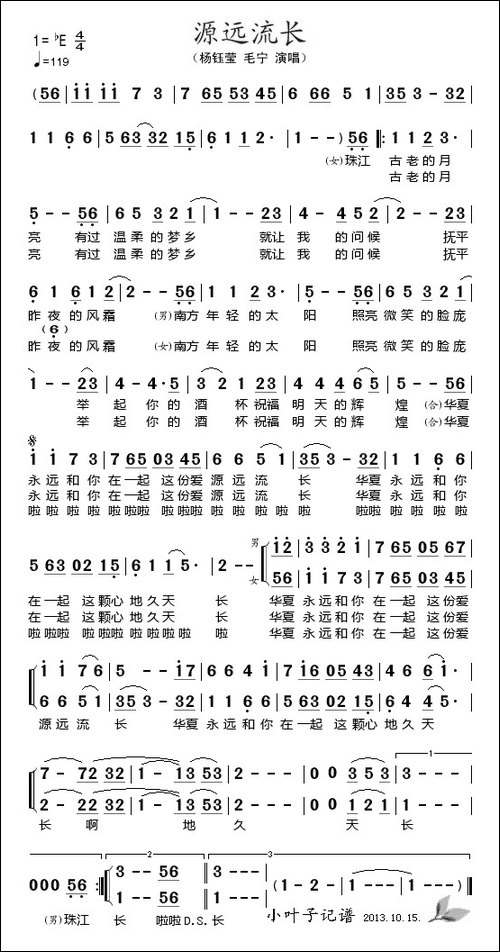 源远流长
1=♭E 4/4
♩=119
（杨钰莹 毛宁 演唱）
(56 | i i i i 7 3 | 7 65 53 45 | 6 6 6 5 1 | 35 3 - 32 |
1 1 6 6 | 5 63 32 15 | 6 1 1 2· | 1 - - ) 56 ‖: 1 1 2 3· |
（女）珠江 古老的月
古老的月
5 - - 56 | 6 5 3 2 1 | 1 - - 23 | 4 - 4 5 2 | 2 - - 23 |
亮 有过 温柔的梦乡 就让 我的问候 抚平
亮 有过 温柔的梦乡 就让 我的问候 抚平
6 1 6 1 2 | 2 - - 56 | 1 1 2 3· | 5 - - 56 | 6 5 3 2 1 |
昨夜的风霜 （男）南方 年轻的太 阳 照亮 微笑的脸庞
(6)
昨夜的风霜 （女）南方 年轻的太 阳 照亮 微笑的脸庞
1 - - 23 | 4 - 4·5 | 3 2 1 23 | 4 4 4 6 5 | 5 - - 56 |
举 起 你的 酒 杯祝福 明天的辉 煌 （合）华夏
举 起 你的 酒 杯祝福 明天的辉 煌 （合）华夏
i i 7 3 | 7 65 03 45 | 6 6 5 1 | 35 3 - 32 | 1 1 6 6 |
永远和你 在一起 这份爱 源远流 长 华夏 永远和你
永远和你 在一起 这份爱 源远流 长 华夏 永远和你
啦啦啦啦 啦啦啦 啦啦啦 啦啦啦 啦 啦啦 啦啦啦啦
5 63 02 15 | 6 1 1 5· | 2 - - 男 i2 | 3 3 2 i | 7 65 05 67 |
女 56 | i i 7 3 | 7 65 03 45 |
在一起 这颗心 地久天 长 华夏 永远和你 在一起 这份爱
在一起 这颗心 地久天 长 华夏 永远和你 在一起 这份爱
啦啦啦 啦啦啦 啦啦啦 啦 华夏 永远和你 在一起 这份爱
i i 7 6 | 5 - - i7 | 6 6 4 i | 7i6 05 43 | 4 6 6 i· |
6 6 5 1 | 35 3 - 32 | 1 1 6 6 | 5 63 02 15 | 6 4 4 5· |
源远流 长 华夏 永远和你 在一起 这颗心 地久天
7 - 72 32 | 1 - 13 53 | 2 - - - | 0 0 3 5 3 | 1 - - - |
2 - 22 32 | 1 - 13 53 | 2 - - - | 0 0 1 2 1 | 1 - - - |
长 啊 地 久 天 长
000 56 :‖ 3 - - 56 ‖ 3 - - - | (1 - 2 - | 1 - - - ) ‖
1 - - 56 ‖ 1 - - - |
（男）珠江 长 啦啦D.S.长 小叶子记谱 2013.10.15.